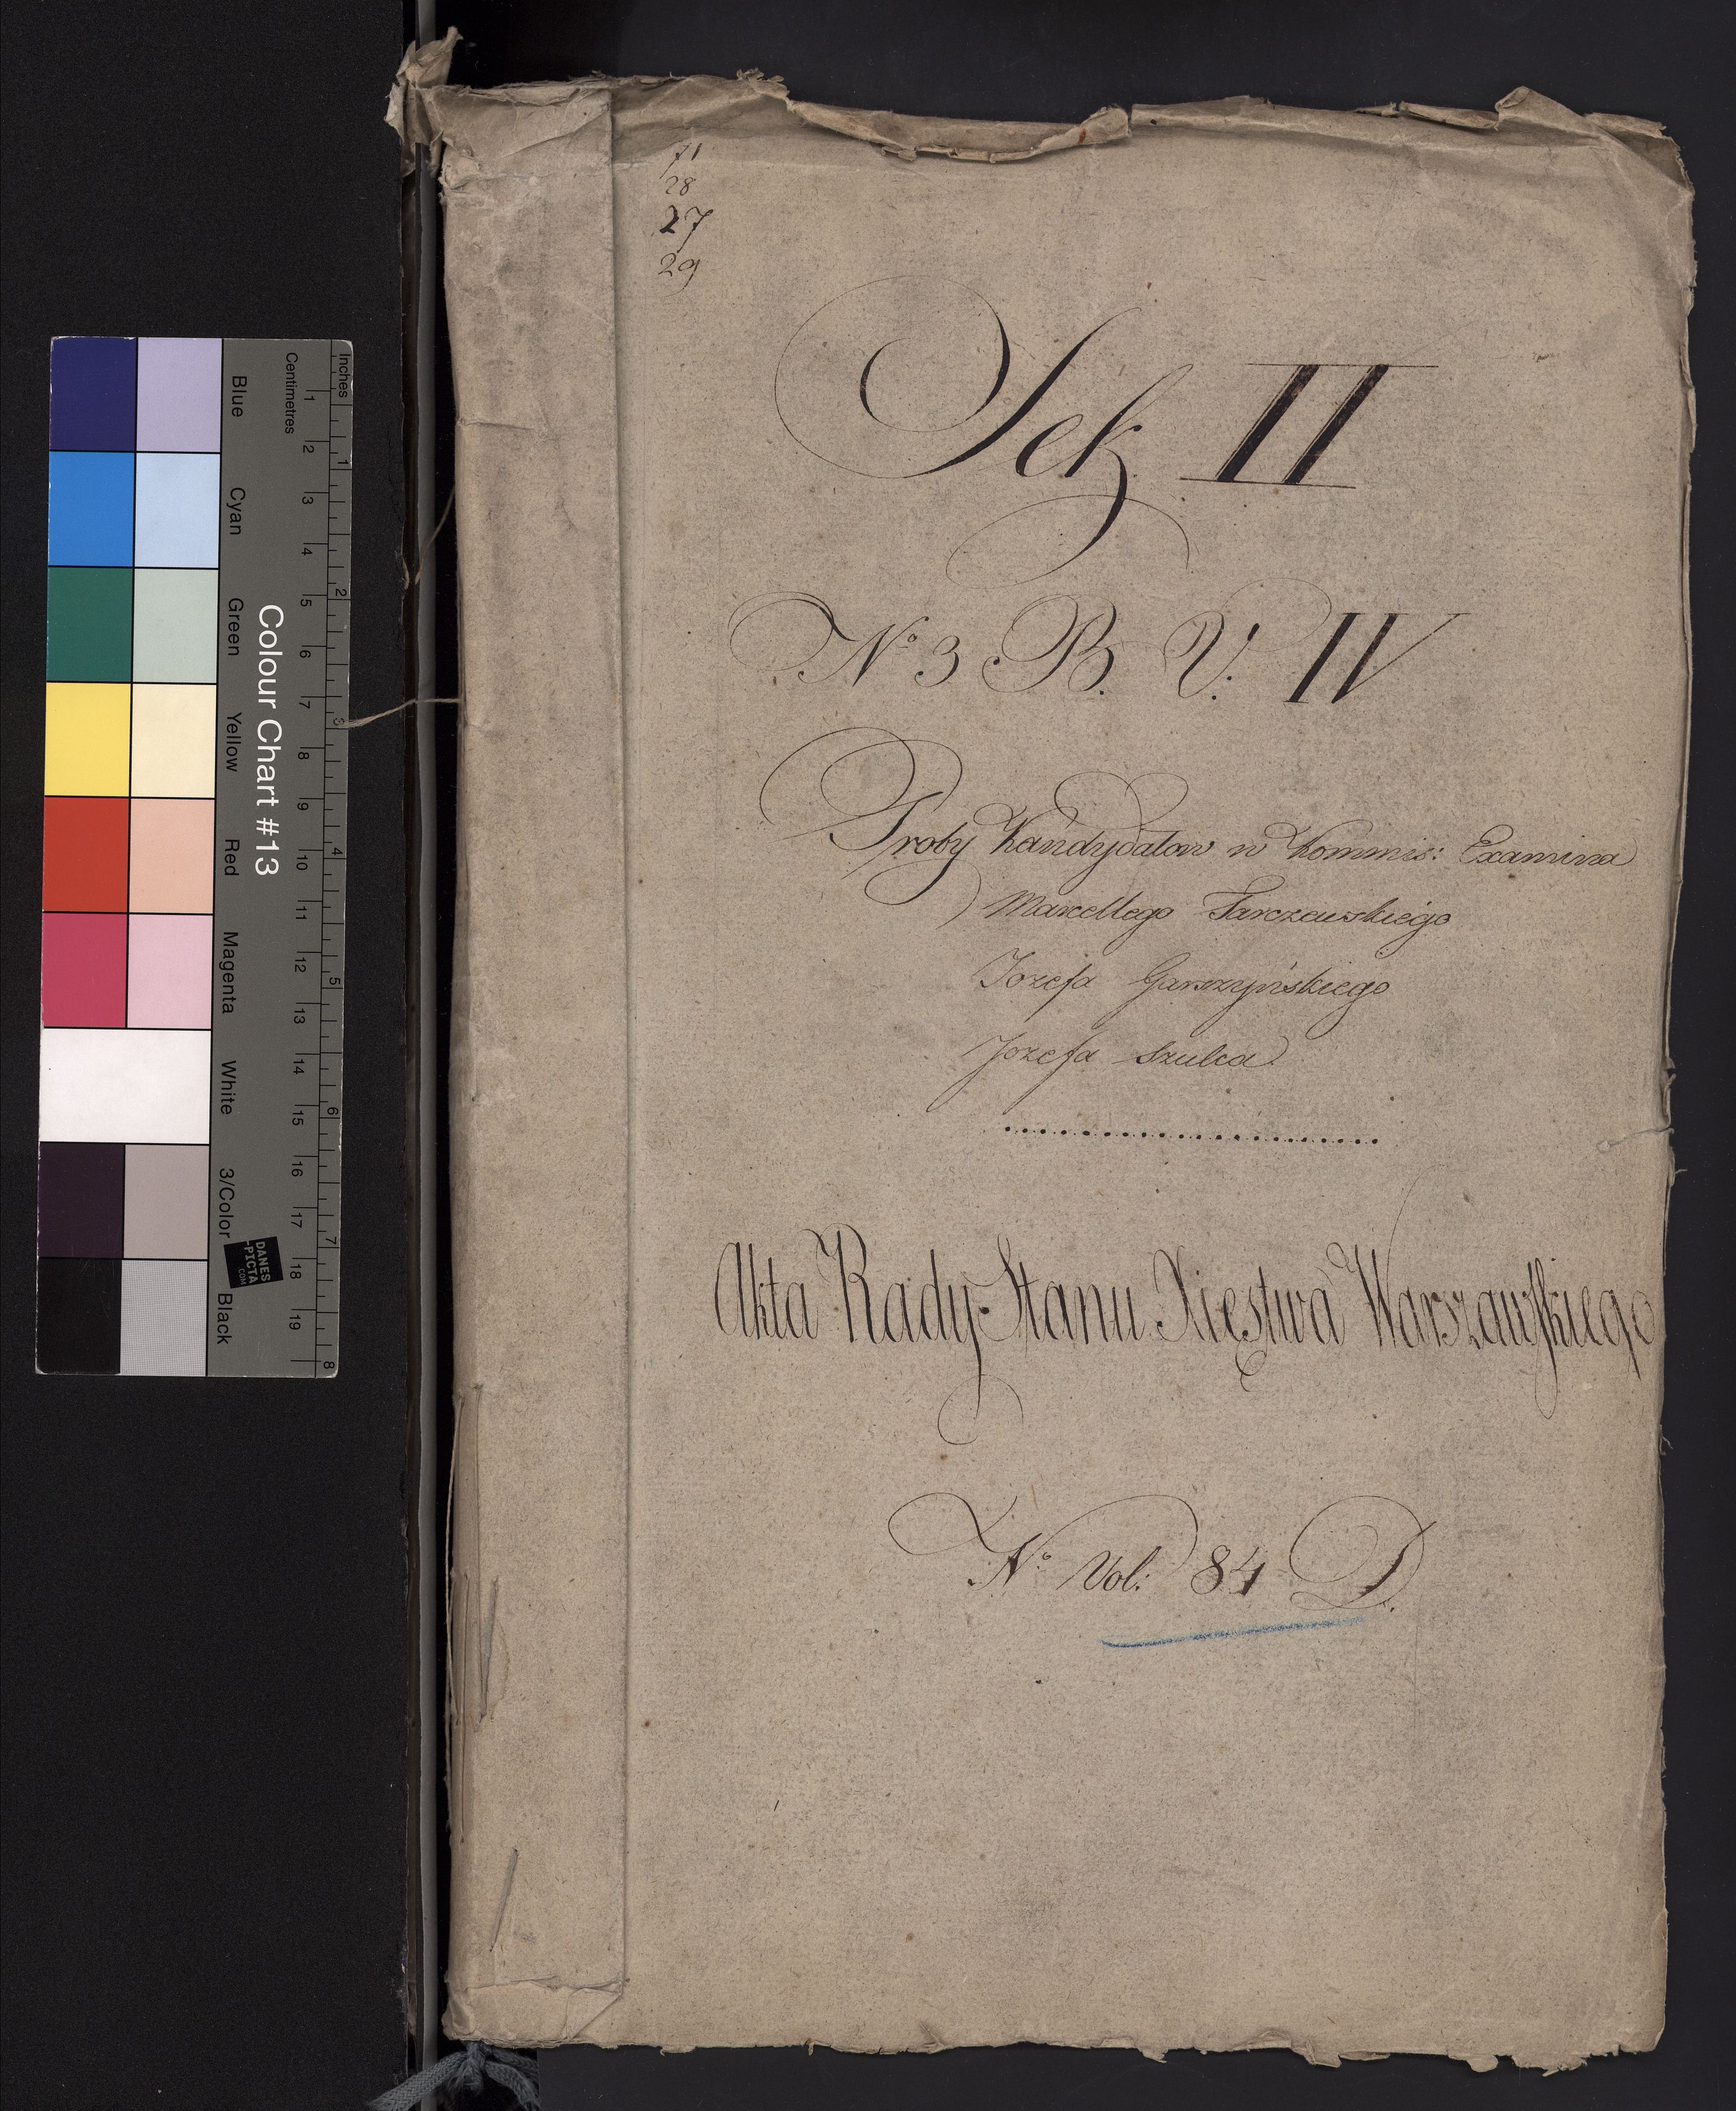 71
28
27
29
Sek II
No 3 B. V: IV
Proby Kandydatow w Kommis: Examina
Marcellego Tarczewskiego
Jozefa Garszyńskiego
Jozefa Szulca
Akta Rady Stanu Xięstwa Warszawskiego
No Vol: 84 D.
Inches
Centimetres
1 2 3 4 5 6 7 8 9 10 11 12 13 14 15 16 17 18 19
1 2 3 4 5 6 7 8
Colour Chart #13
Blue Cyan Green Yellow Red Magenta White 3/Color Black
DANES
-PICTA
.COM